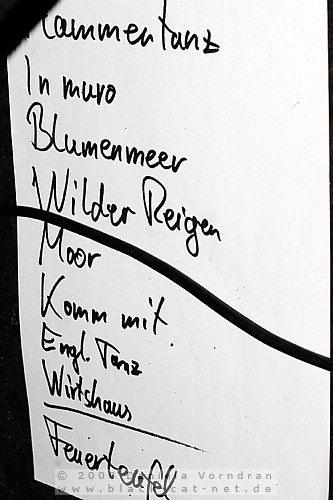 Flammentanz
In muro
Blumenmeer
Wilder Reigen
Moor
Komm mit
Engl. Tanz
Wirtshaus
Feuerteufel
Vorndran
www.black-cat-net.de